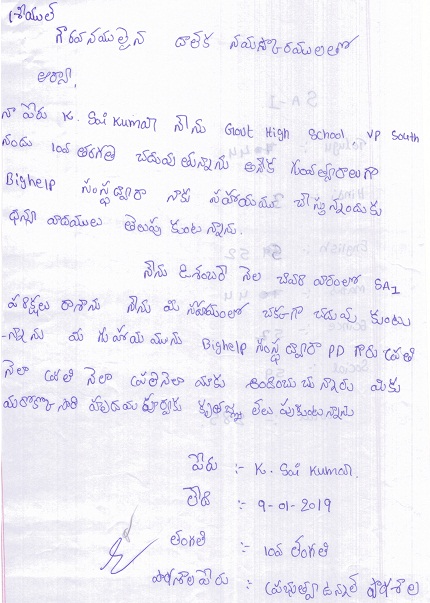 శ్రీయుత
గౌరవనీయులైన దాతకి నమస్కారములతో
ఆర్యా,
నా పేరు K. Sai Kumar నేను Govt High School VP South
నందు 10వ తరగతి చదువుతున్నాను అనేక సంవత్సరాలుగా
Bighelp సంస్థ ద్వారా నాకు సహాయము చేస్తున్నందుకు
ధన్యవాదములు తెలుపుకుంటున్నాను.
నేను డిశంబర్ నెల చివరి వారంలో SA1
పరీక్షలు రాశాను నేను మీ సహాయంలో చక్కగా చదువుకుంటు
-న్నాను యీ సహాయమును Bighelp సంస్థ ద్వారా PD గారు ప్రతి
నెలా ప్రతి నెలా ప్రతినెలా మాకు అందించుచున్నారు మీకు
మరొక్కసారి హృదయపూర్వక కృతజ్ఞతలు తెలుపుకుంటున్నాను
పేరు :- K. Sai Kumar.
తేది :- 9-01-2019
తరగతి :- 10వ తరగతి
పాఠశాల పేరు :- ప్రభుత్వ ఉన్నత పాఠశాల